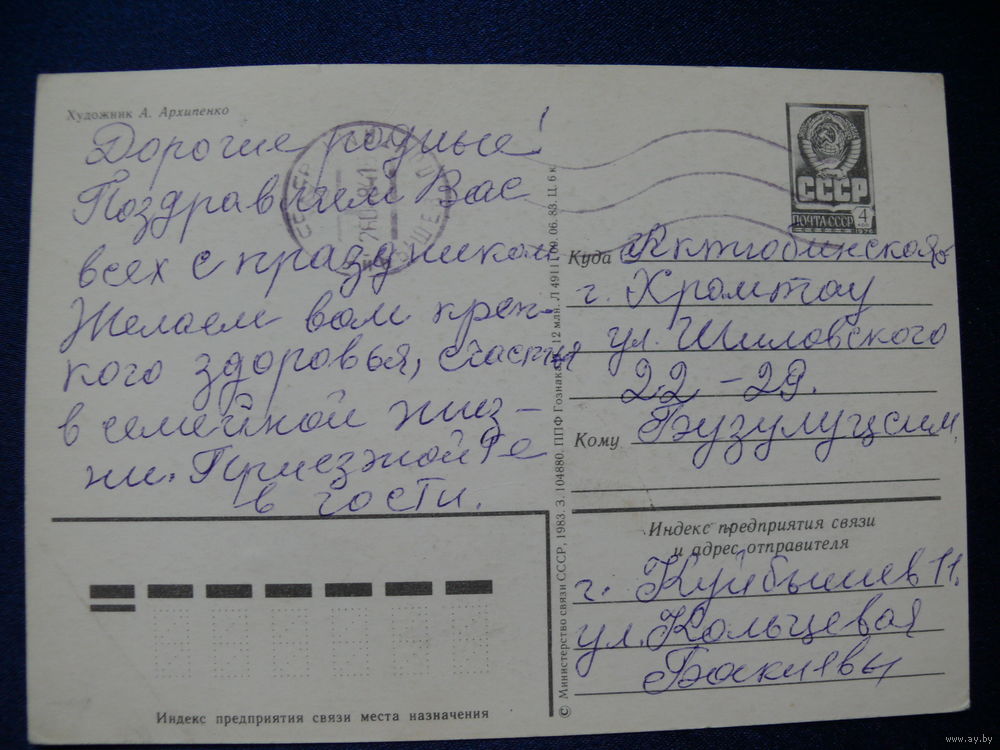 Художник А. Архипенко
Дорогие родные!
Поздравляем Вас
всех с праздником
Желаем вам креп-
кого здоровья, счастья
в семейной жиз-
ни. Приезжайте
в гости.
СССР
ПОЧТА СССР
4
КОП
1976
Куда Актюбинская
г. Хромтау
ул. Шиловского
22-29.
Кому Бузулуцким
Индекс предприятия связи
и адрес отправителя
г. Куйбышев 11.
ул. Кольцевая
Бакиевы
Индекс предприятия связи места назначения
© Министерство связи СССР, 1983. З. 104880. ППФ Гознака. 12 млн. Л 49111 09.06.83. Ц. 6 к.
www.ay.by